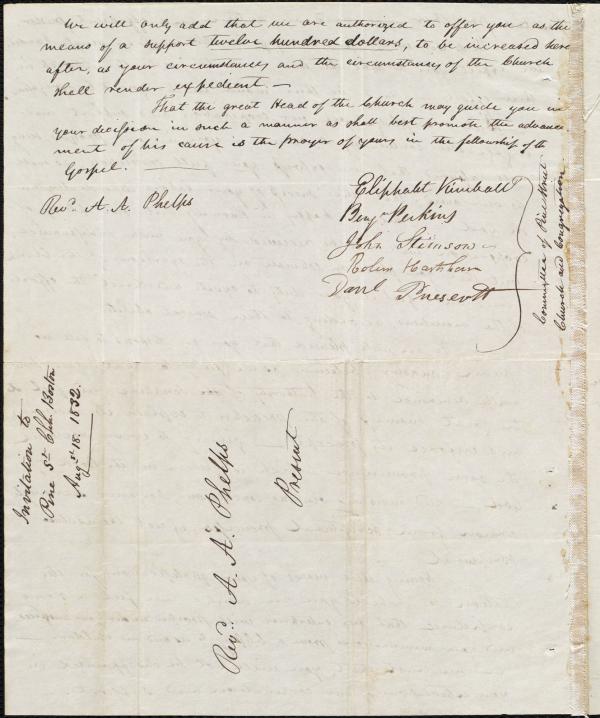 We will only add that we are authorized to offer you as the
means of a support twelve hundred dollars, to be increased here
after, as your circumstances and the circumstances of the Church
shall render expedient. —
That the great Head of the Church may guide you in
your decision in such a manner as shall best promote the advance
ment of his cause is the prayer of yours in the fellowship of the
Gospel. —
Revd. A. A. Phelps
Eliphalet Kimball
Benjn Perkins
John Stimson
Danl Prescott
Committee of Pine Street
Church and Congregation
Invitation to
Pine St. Chh. Boston
Augst 18. 1832.
Revd. A. A. Phelps
Present